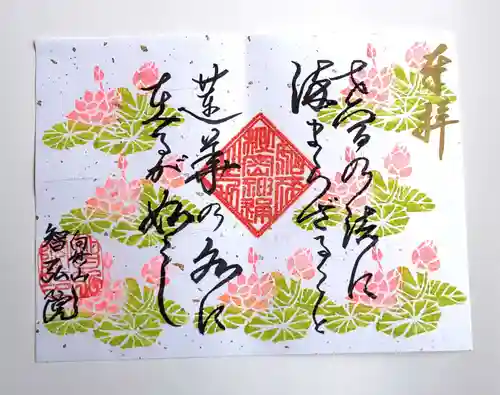 奉拝
世間の法に
染まらざること
蓮華の水に
在るが如し
智弘院